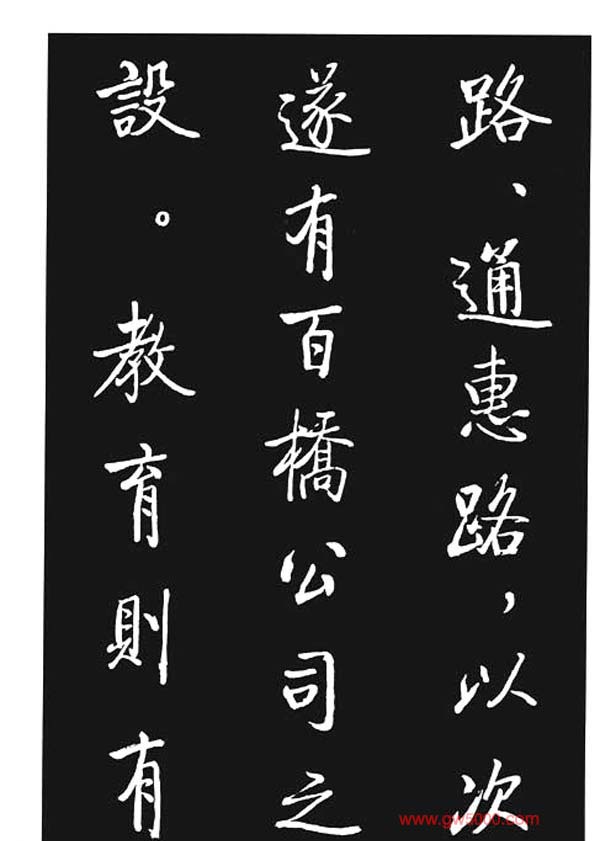 路、通惠路，以次
遂有百橋公司之
設。教育則有
www.gw5000.com